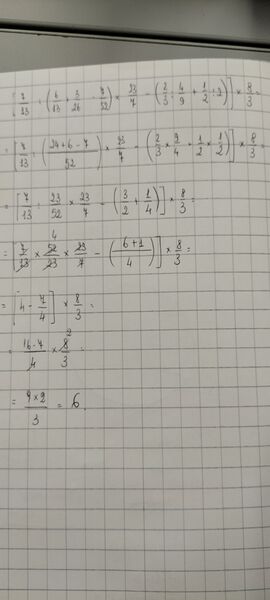 [7/13 : (6/13 + 3/26 - 7/52) × 23/7 - (2/3 : 4/9 + 1/2 : 2)] × 8/3 =
= [7/13 : (24+6-7/52) × 23/7 - (2/3 × 9/4 + 1/2 × 1/2)] × 8/3 =
= [7/13 : 23/52 × 23/7 - (3/2 + 1/4)] × 8/3 =
= [7/13 × 52/23 × 23/7 - (6+1/4)] × 8/3 =
4
= [4 - 7/4] × 8/3 =
= 16-7/4 × 8/3 =
2
= 9×2/3 = 6.